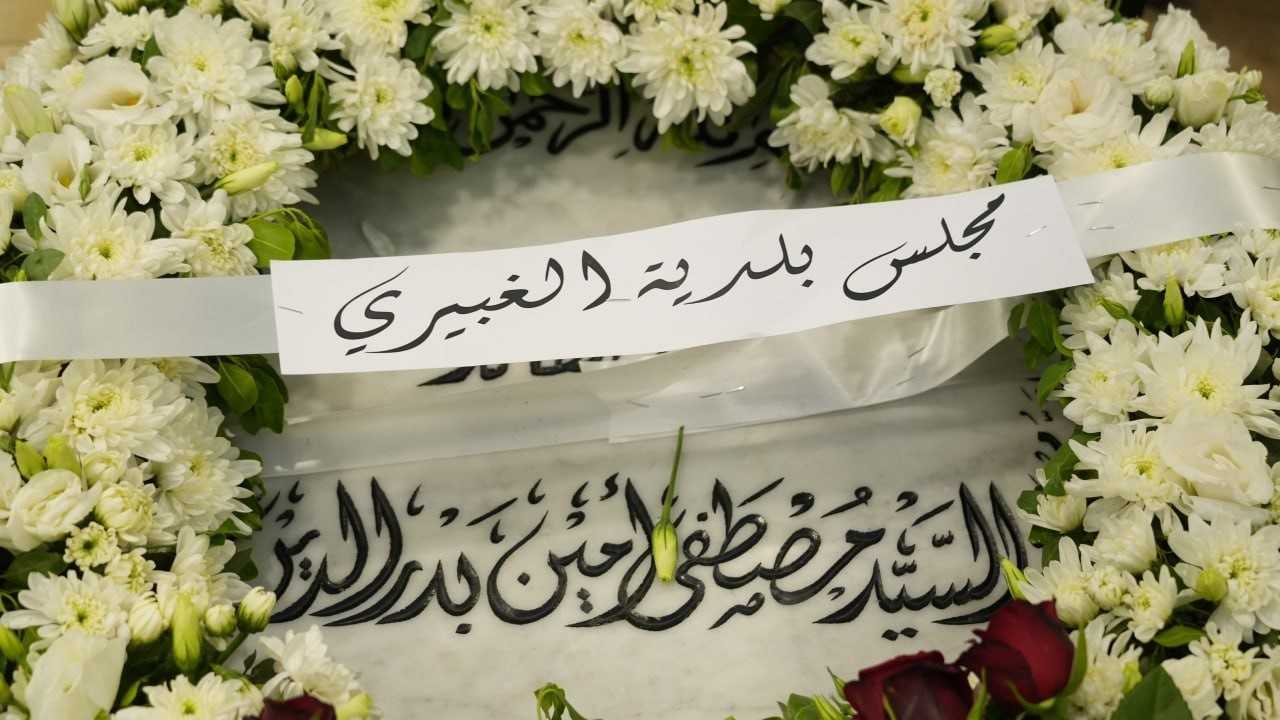 الرحمن
مجلس بلدية الغبيري
السيد مصطفى أمين بدر الدين